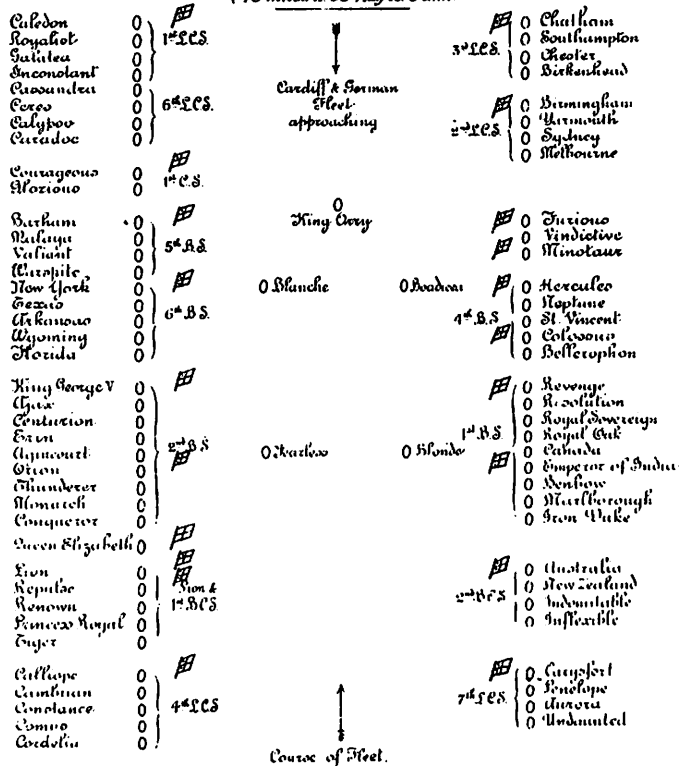 Caledon 0
Royalist 0
Galatea 0
Inconstant 0
1st L.C.S.
Cassandra 0
Ceres 0
Calypso 0
Caradoc 0
6th L.C.S.
Courageous 0
Glorious 0
1st C.S.
Barham 0
Malaya 0
Valiant 0
Warspite 0
5th B.S.
New York 0
Texas 0
Arkansas 0
Wyoming 0
Florida 0
6th B.S.
King George V 0
Ajax 0
Centurion 0
Erin 0
Agincourt 0
Orion 0
Thunderer 0
Monarch 0
Conqueror 0
2nd B.S.
Queen Elizabeth 0
Lion 0
Repulse 0
Renown 0
Princess Royal 0
Tiger 0
Lion &
1st B.C.S.
Calliope 0
Cambrian 0
Constance 0
Comus 0
Cordelia 0
4th L.C.S.
Cardiff & German
Fleet
approaching
0
King Orry
0 Blanche
0 Boadicea
0 Fearless
0 Blonde
Course of Fleet.
3rd L.C.S.
0 Chatham
0 Southampton
0 Chester
0 Birkenhead
2nd L.C.S.
0 Birmingham
0 Yarmouth
0 Sydney
0 Melbourne
0 Furious
0 Vindictive
0 Minotaur
4th B.S.
0 Hercules
0 Neptune
0 St. Vincent
0 Colossus
0 Bellerophon
1st B.S.
0 Revenge
0 Resolution
0 Royal Sovereign
0 Royal Oak
0 Canada
0 Emperor of India
0 Benbow
0 Marlborough
0 Iron Duke
2nd B.C.S.
0 Australia
0 New Zealand
0 Indomitable
0 Inflexible
7th L.C.S.
0 Carysfort
0 Penelope
0 Aurora
0 Undaunted